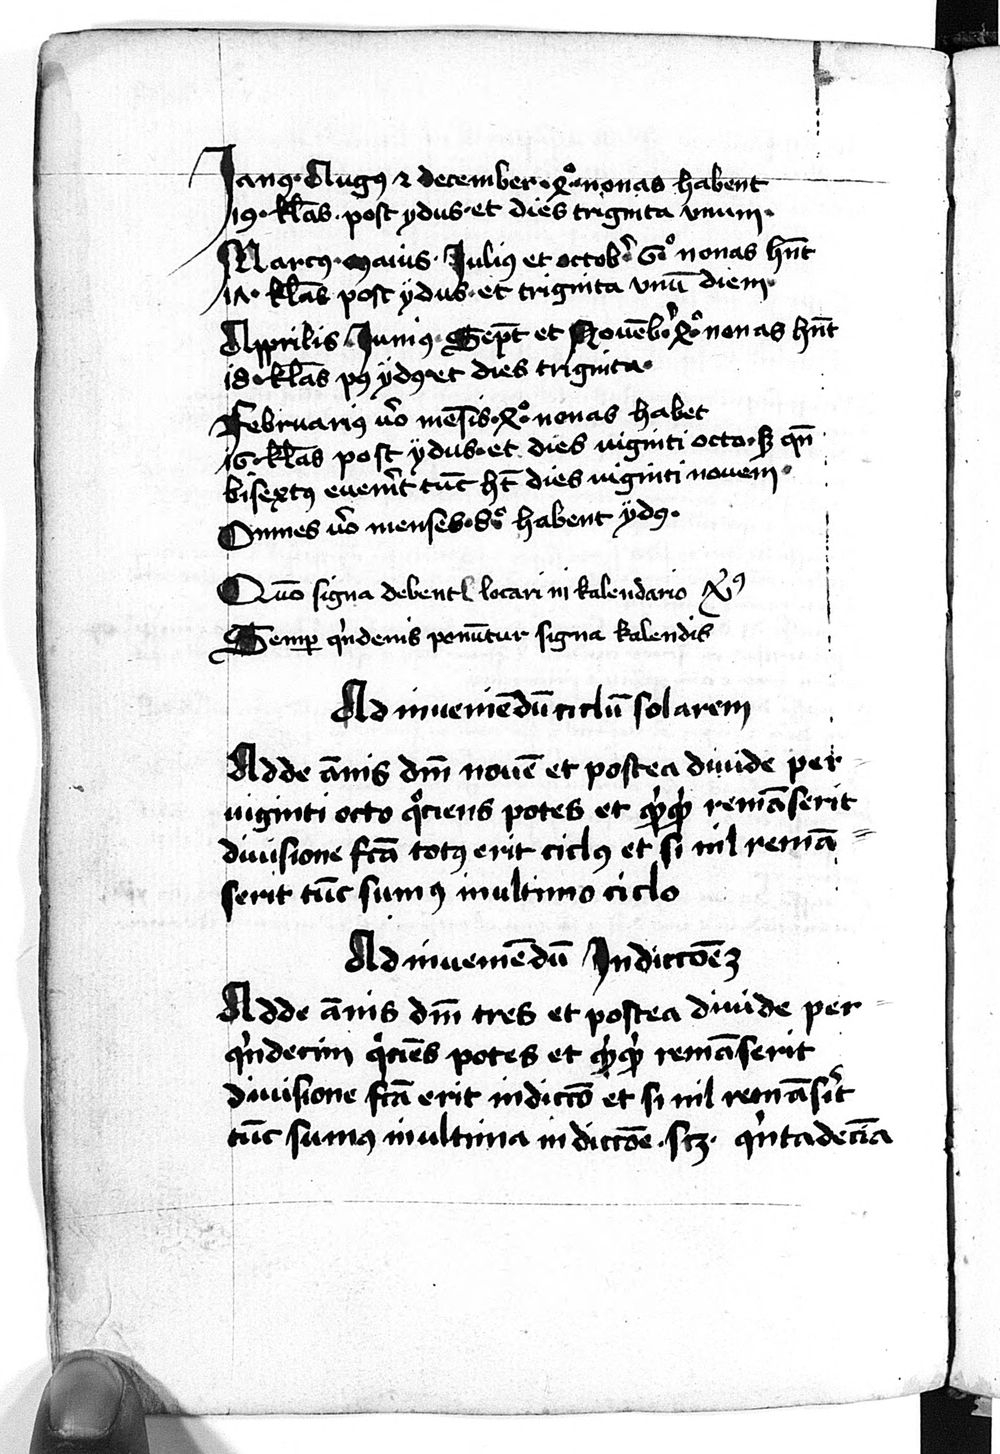 Ianꝰ · Augꝰ ⁊ december · 4ᵒʳ · nonas habent
19 · kƚas · post ydus · et dies triginta vnum ·
Marcꝰ · Maius · Iuliꝰ et octobʳ 6ᵒ nonas hn̄t
17 · kƚas post ydus · et triginta vnū diem ·
Apprilis Iuniꝰ · Sept̄ et Nouēbʳ · 4ᵒʳ nonas hn̄t
18 · kƚas pꝰ ydꝰ · et dies triginta ·
Februariꝰ v̄o mēsis · 4ᵒʳ · nonas habet
16 · kƚas post ydus · et dies viginti octo · sꝫ qn̄
bisextꝰ euenēit tūc hт̄ dies viginti novem ·
Omnes v̄o menses · 8ᵒ habent ydꝰ ·
Quō signa debent locari in kalendario
Semꝑ qⁱndenis ponūtur signa kalendis
Ad inueniēdū ciclū solarem
Adde ānis dn̄i nouē et postea diuide per
viginti octo qᵒciens potes et qⁱcqⁱd remāserit
diuisione fc̄a totꝰ erit ciclꝰ et si nil remā
serit tūc sumꝰ in ultimo ciclo
Ad inueniēdū Indiccōeꝫ
Adde ānis dn̄i tres et postea diuide per
qⁱndecim qᵒciēs potes et qⁱcqⁱd remāserit
diuisione fc̄a erit indiccō et si nil remāsⁱt
tūc sumꝰ in ultima indiccōe · scꝫ · qⁱntadeciā